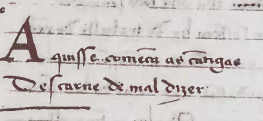 Aquisse comēcā as cātigas
Descarne de mal dizer